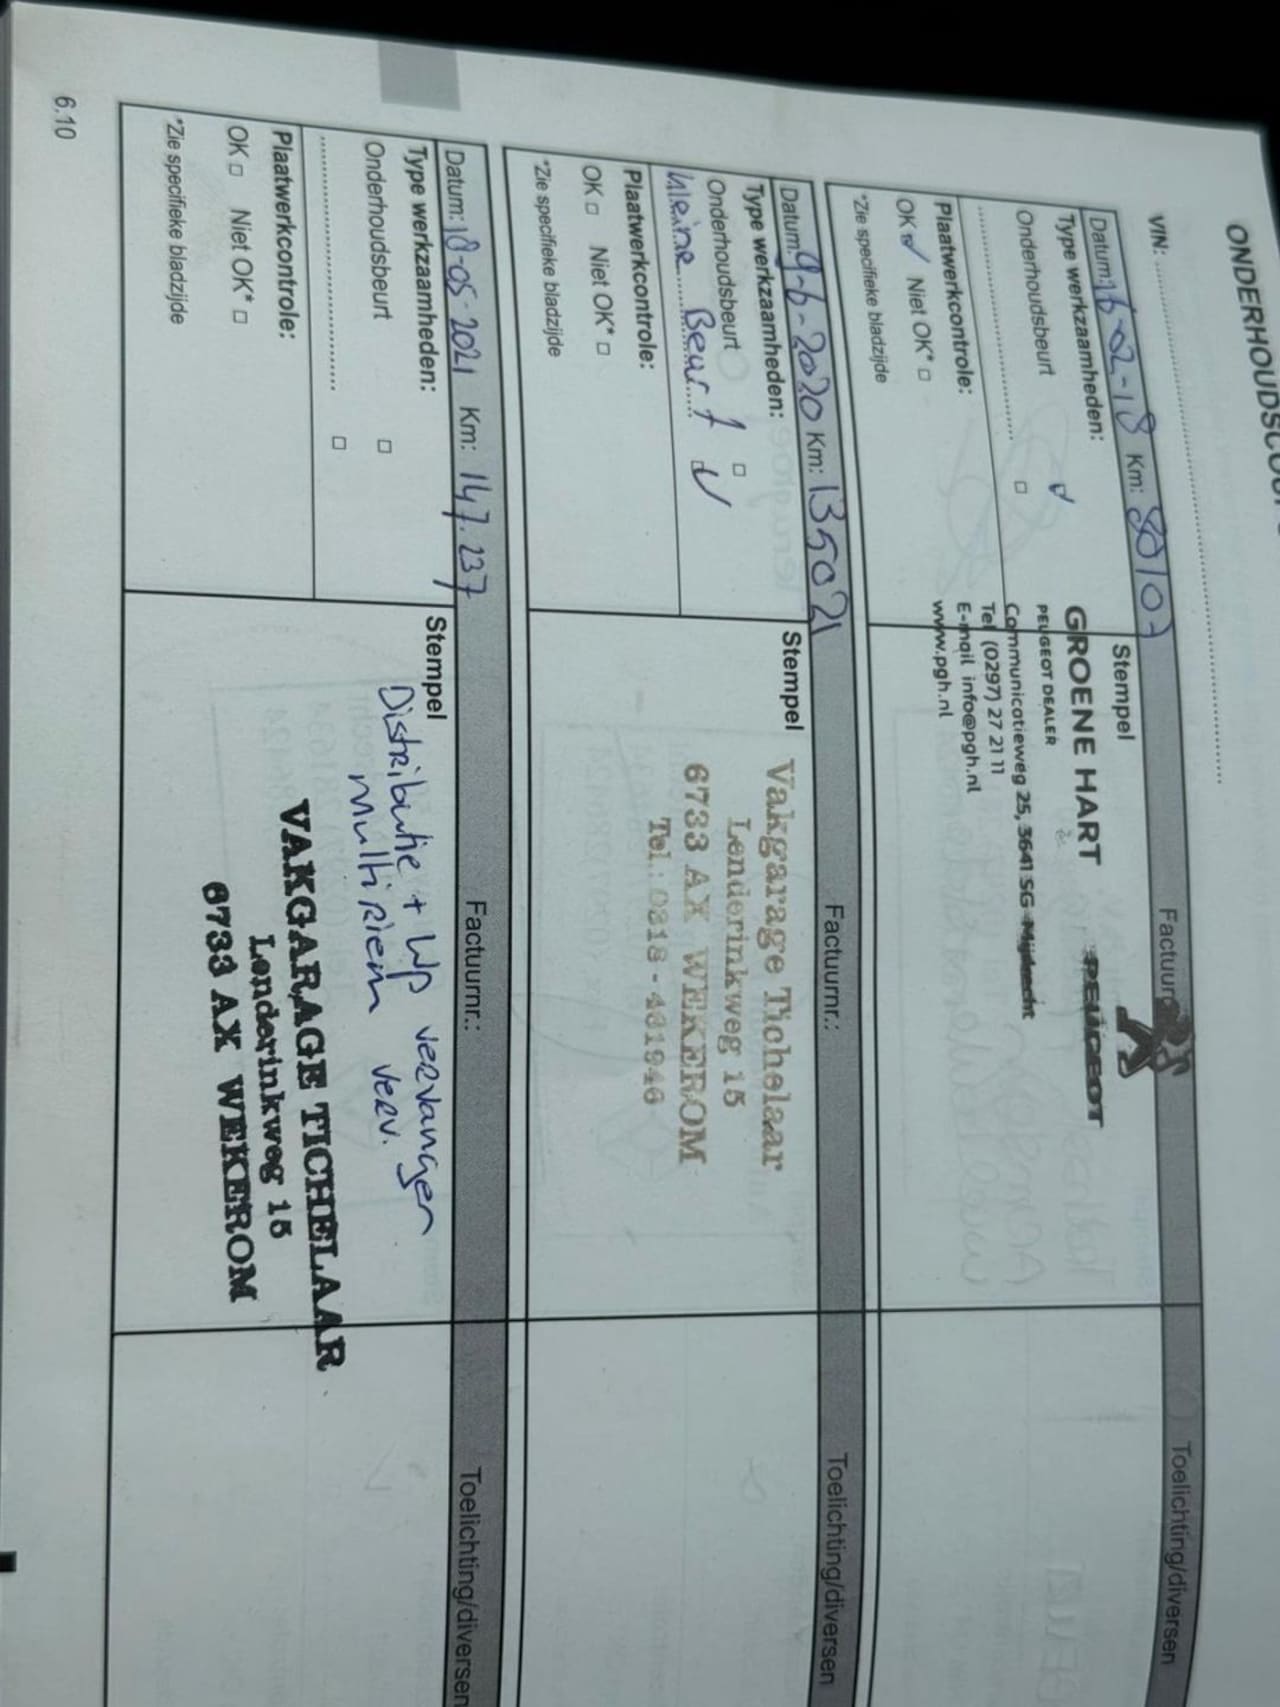 VIN: ........................................
Datum: 16-02-18 Km: 80107
Factuurnr
Toelichting/diversen
Type werkzaamheden:
Onderhoudsbeurt
Plaatwerkcontrole:
OK Niet OK*
*Zie specifieke bladzijde
Stempel
GROENE HART PEUGEOT
PEUGEOT DEALER
Communicatieweg 25, 3641 SG Mijdrecht
Tel (0297) 27 21 11
E-mail info@pgh.nl
www.pgh.nl
Datum: 9-6-2020 Km: 135021
Factuurnr.:
Toelichting/diversen
Type werkzaamheden:
Onderhoudsbeurt
kleine Beurt
Plaatwerkcontrole:
OK Niet OK*
*Zie specifieke bladzijde
Stempel
Vakgarage Tichelaar
Lenderinkweg 15
6733 AX WEKEROM
Tel.: 0318 - 461946
Datum: 18-05-2021 Km: 147.237
Factuurnr.:
Toelichting/diversen
Type werkzaamheden:
Onderhoudsbeurt
Plaatwerkcontrole:
OK Niet OK*
*Zie specifieke bladzijde
Stempel
Distributie + WP vervangen
Multi Riem verv.
VAKGARAGE TICHELAAR
Lenderinkweg 15
6733 AX WEKEROM
6.10